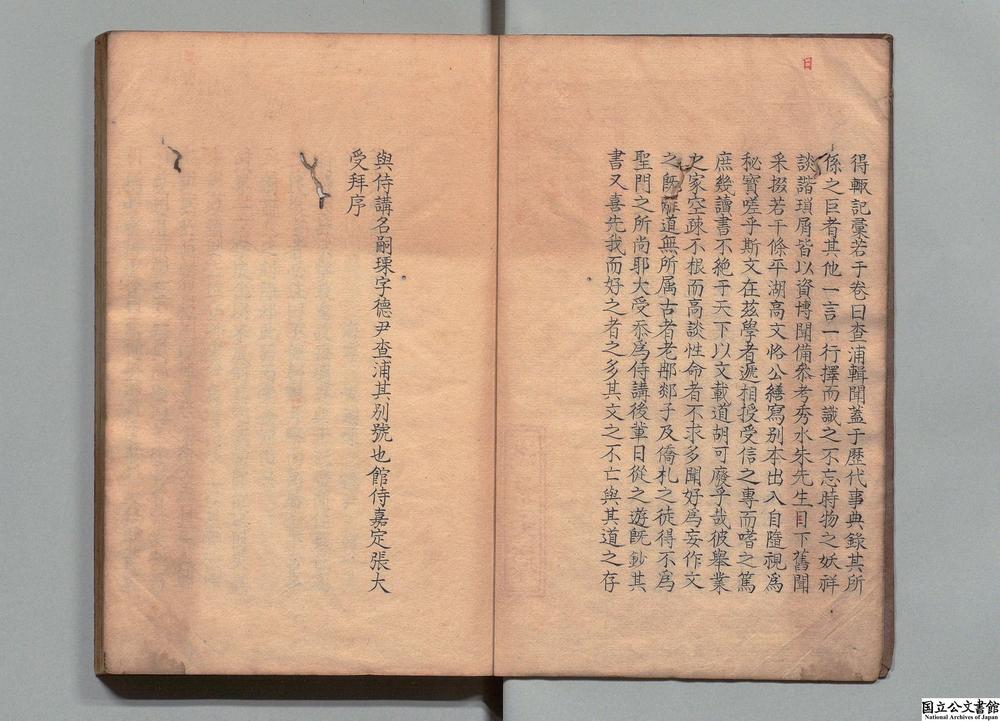 日
得輒記槀若干卷曰查浦輯聞蓋于歷代事典錄其所
係之巨者其他一言一行擇而識之不忘時物之妖祥
談諧瑣屑皆以資博聞備叅考秀水朱先生日下舊聞
采掇若干條平湖高文恪公繕寫别本出入自隨視為
秘寶嗟乎斯文在兹學者遞相授受信之專而嗜之篤
庶幾讀書不絕于天下以文載道胡可廢乎哉彼舉業
之家空疎不根而高談性命者不求多聞好爲妄作文
之旣離道無所属古者老耼郯子及僑札之徒得不爲
聖門之所尚耶大受忝爲侍講後輩日從之遊旣鈔其
書又喜先我而好之者之多其文之不亡與其道之存
與侍講名嗣瑮字德尹查浦其别號也館侍嘉定張大
受拜序
国立公文書館
National Archives of Japan